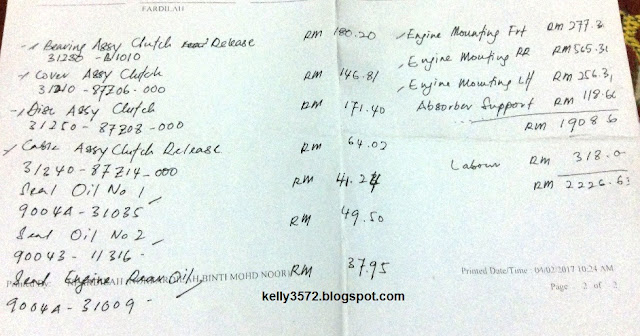 FARDILAH
Bearing Assy Clutch Release RM 180.20
31230 - B1010
Cover Assy Clutch RM 146.81
31210 - 87706 - 000
Disc Assy Clutch RM 171.40
31250 - 87208 - 000
Cable Assy Clutch Release RM 64.02
31240 - 87714 - 000
Seal Oil No 1 RM 41.24
9004A - 31035
Seal Oil No 2 RM 49.50
90043 - 11316
Seal Engine Rear Oil RM 37.95
9004A - 31009
BINTI MOHD NOOR
Engine Mounting Frt RM 277.3
Engine Mounting RR RM 565.31
Engine Mounting LH RM 256.3
Absorber Support RM 118.6
RM 1908.6
Labour RM 318.0
RM 2226.63
Printed Date/Time : 04/02/2017 10:24 AM
Page 2 of 2
kelly3572.blogspot.com